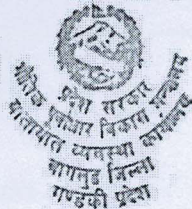 प्रदेश सरकार
भौतिक पूर्वाधार विकास मन्त्रालय
यातायात व्यवस्था कार्यालय
बागलुङ जिल्ला
गण्डकी प्रदेश